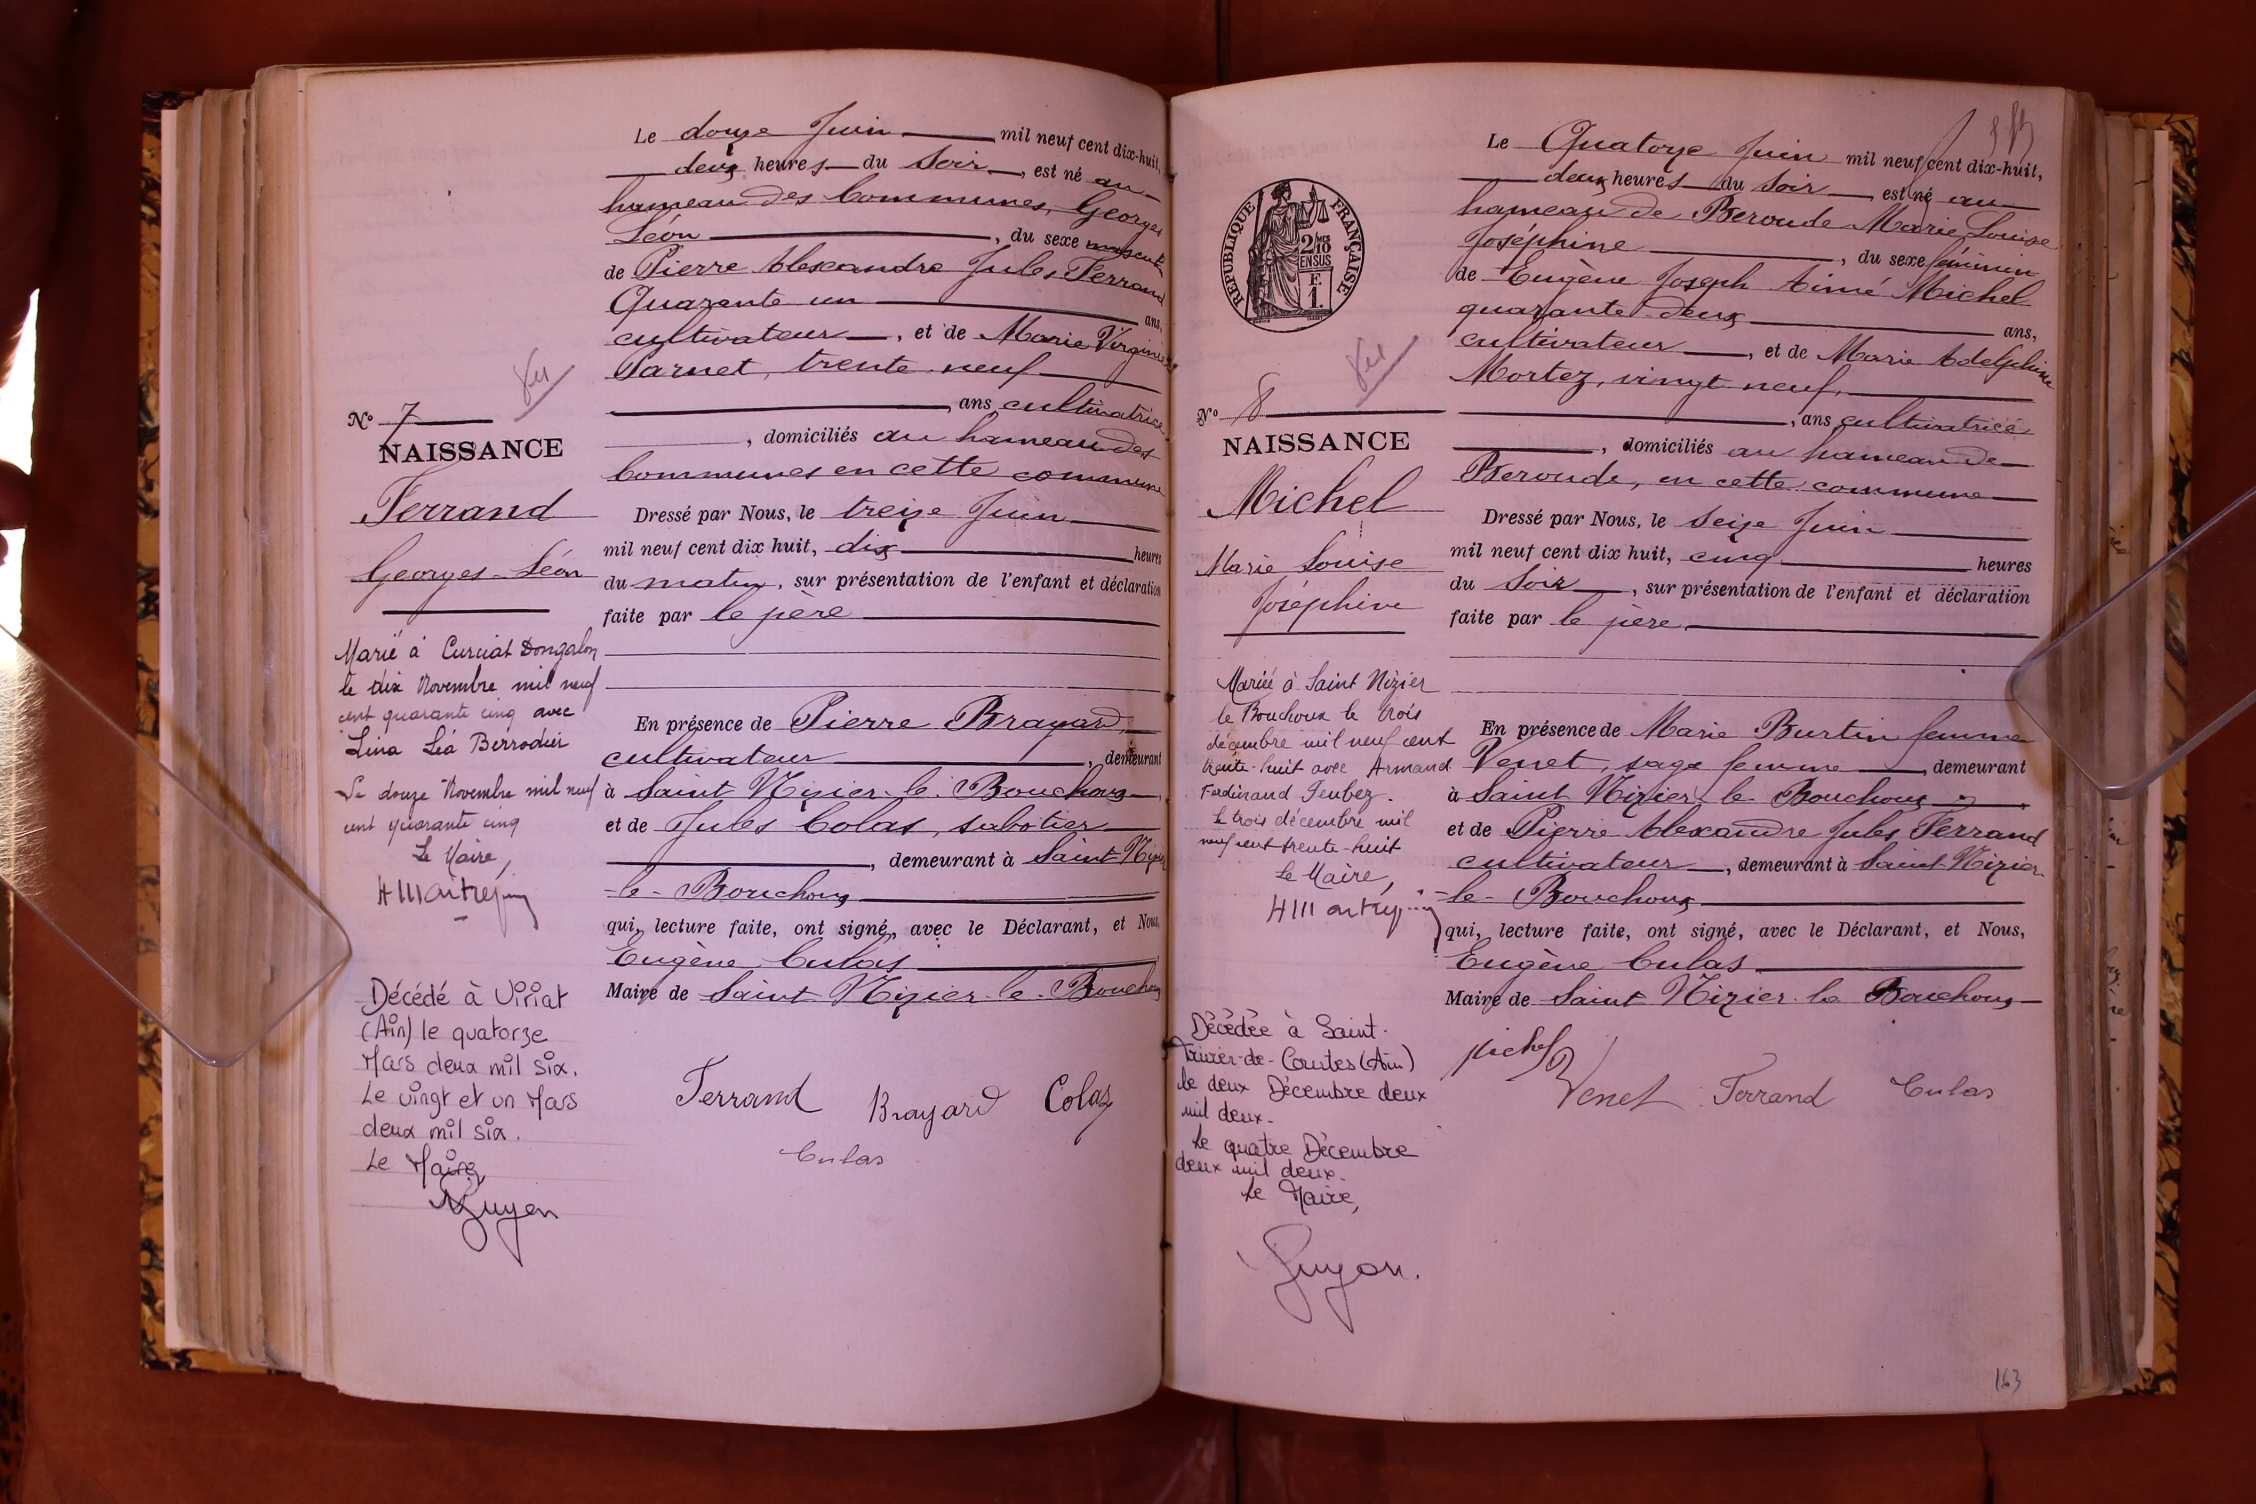 Le douze Juin mil neuf cent dix-huit,
deux heures du Soir, est né au
hameau des Communes, Georges
Léon, du sexe masculin
de Pierre Alexandre Jules Ferrand
Quarante un ans,
cultivateur, et de Marie Virginie
Parnet, trente neuf
, ans cultivatrice
, domiciliés au hameau des
Communes en cette commune
Dressé par Nous, le treize Juin
mil neuf cent dix huit, dix heures
du matin, sur présentation de l'enfant et déclaration
faite par le père
En présence de Pierre Brayard,
cultivateur, demeurant
à Saint Nizier-le-Bouchoux
et de Jules Colas, sabotier
, demeurant à Saint Nizier
-le-Bouchoux
qui, lecture faite, ont signé, avec le Déclarant, et Nous,
Eugène Culas
Maire de Saint Nizier-le-Bouchoux
Ferrand Brayard Colas
Culas
Nº 7
NAISSANCE
Ferrand
Georges-Léon
Marié à Curciat Dongalon
le dix Novembre mil neuf
cent quarante cinq avec
Lina Léa Berrodier
Le douze Novembre mil neuf
cent quarante cinq
Le Maire,
Décédé à Viriat
(Ain) le quatorze
Mars deux mil six.
Le vingt et un Mars
deux mil six.
Le Maire
Guyon
Le Quatorze Juin mil neuf cent dix-huit,
deux heures du Soir, est né au
hameau de Beroude Marie Louise
Joséphine, du sexe féminin
de Eugène Joseph Aimé Michel
quarante deux ans,
cultivateur, et de Marie Adelphine
Mortez, vingt neuf,
, ans cultivatrice
, domiciliés au hameau de
Beroude, en cette commune
Dressé par Nous, le Seize Juin
mil neuf cent dix huit, cinq heures
du Soir, sur présentation de l'enfant et déclaration
faite par le père
En présence de Marie Burtin femme
Venet, sage femme, demeurant
à Saint Nizier-le-Bouchoux
et de Pierre Alexandre Jules Ferrand
cultivateur, demeurant à Saint Nizier
-le-Bouchoux
qui, lecture faite, ont signé, avec le Déclarant, et Nous,
Eugène Culas
Maire de Saint Nizier-le-Bouchoux
Michel Venet Ferrand Culas
RÉPUBLIQUE FRANÇAISE
2/10
EN SUS
F.
1.
Nº 8
NAISSANCE
Michel
Marie Louise
Joséphine
Mariée à Saint Nizier
le Bouchoux le trois
décembre mil neuf cent
trente-huit avec Armand
Ferdinand
Le trois décembre mil
neuf cent trente-huit
Le Maire,
Décédée à Saint-
Trivier-de-Courtes (Ain)
le deux Décembre deux
mil deux.
Le quatre Décembre
deux mil deux.
Le Maire,
Guyon.
163